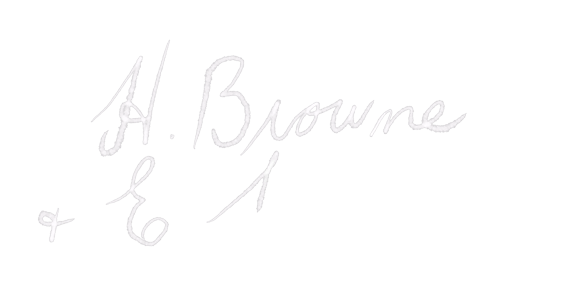 H. Browne
& E 1